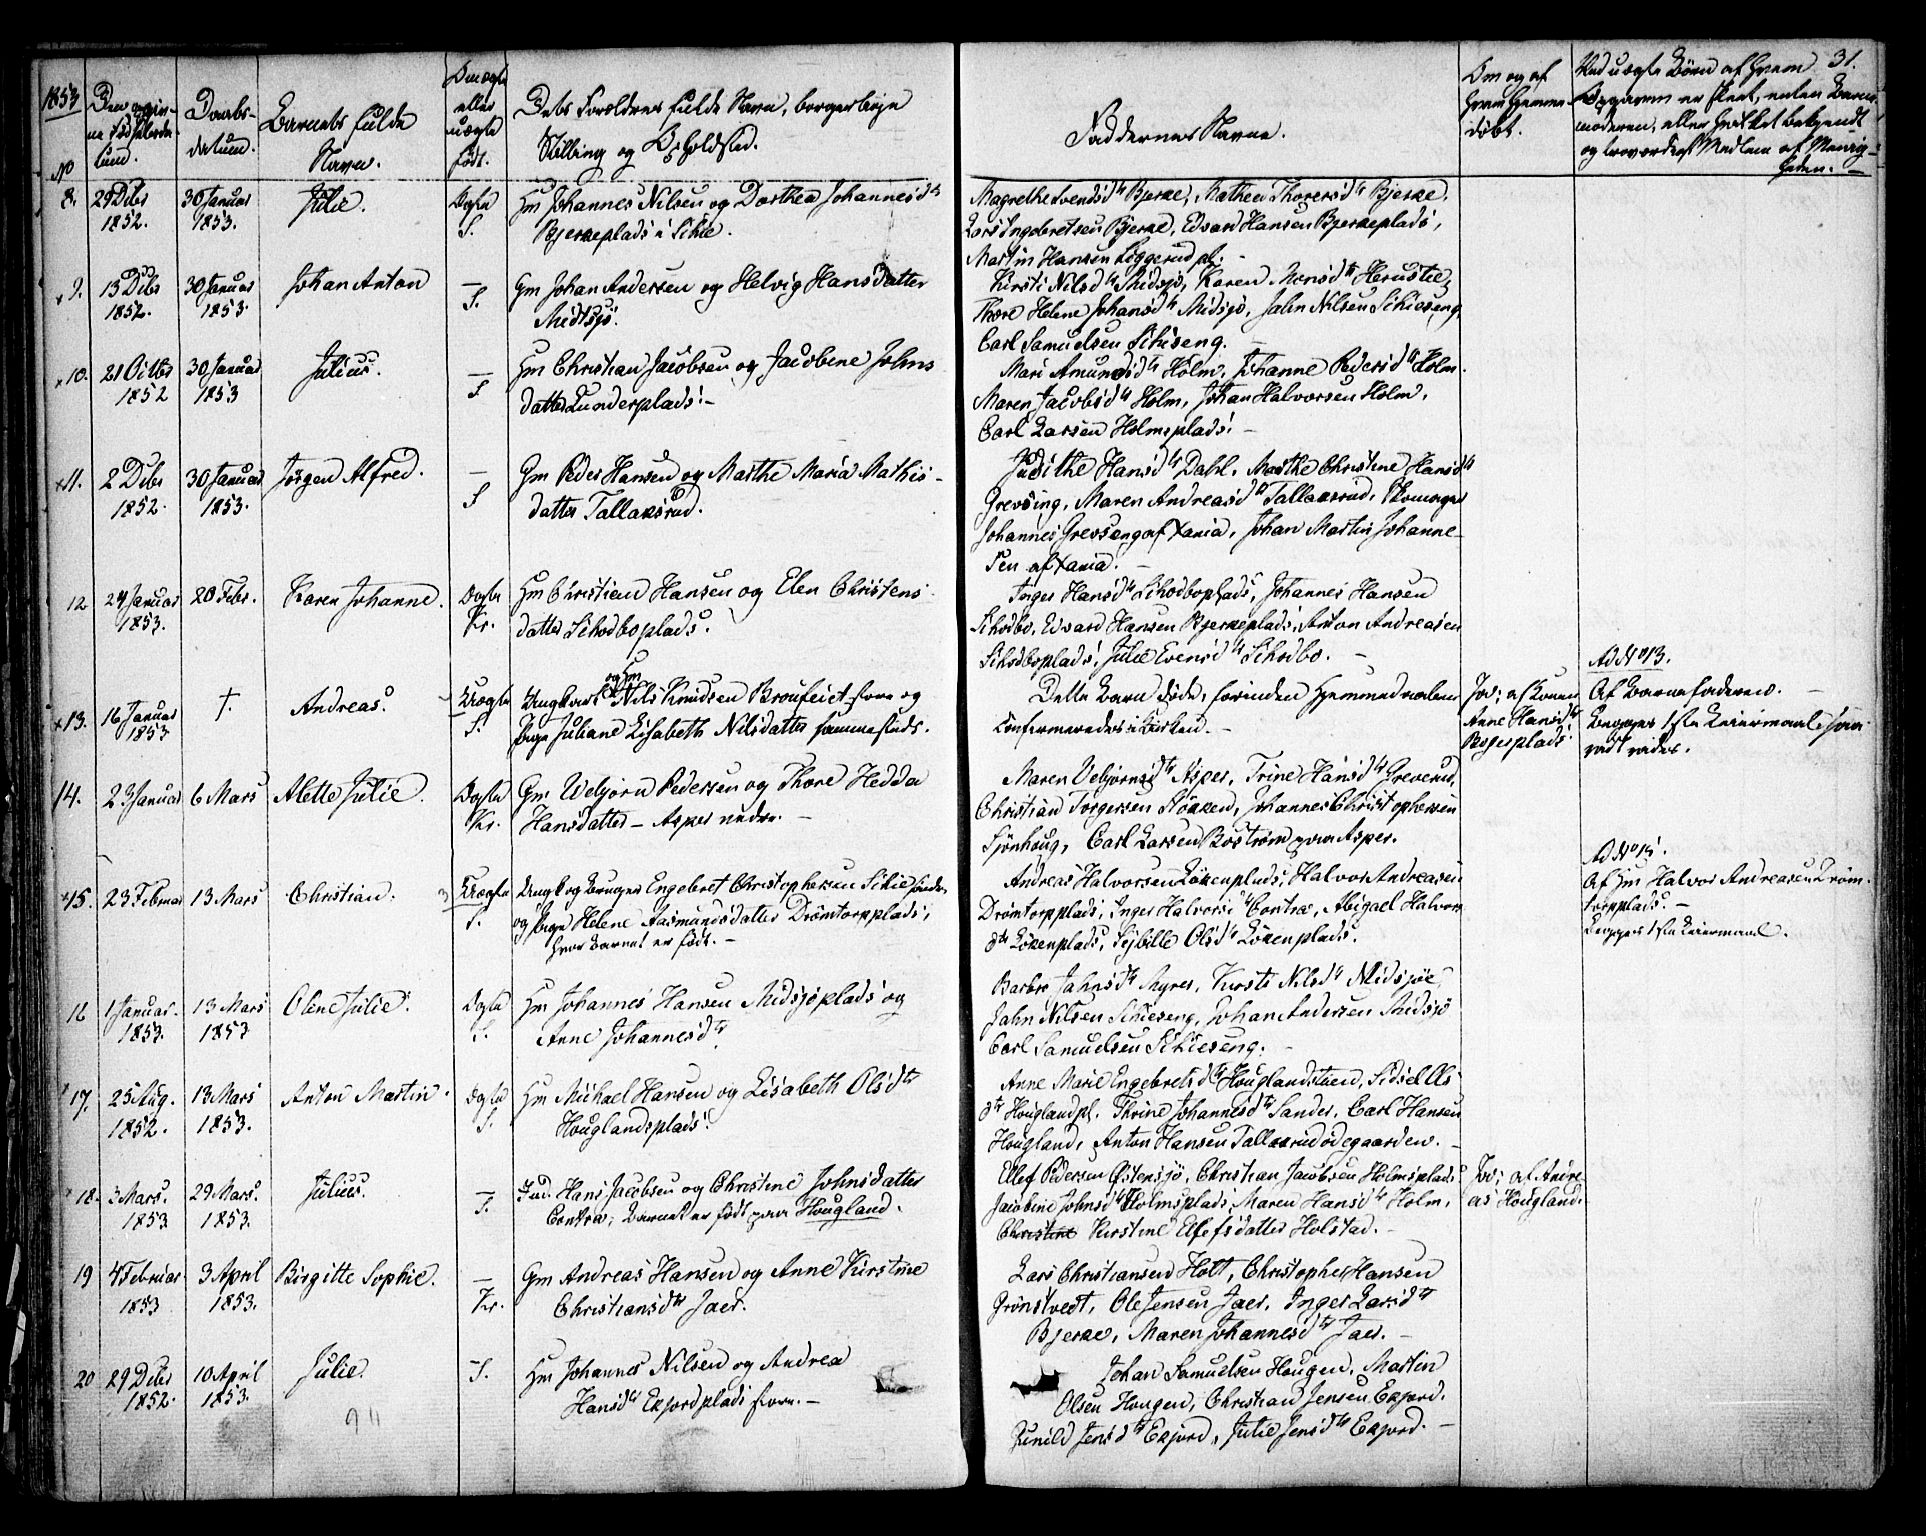 1853
31.
No
Den og gin-
ne Fødselsda-
tum.
Daabs-
datum.
Barnets fulde
Navn.
Om ægte
eller
uægte
født.
Dets Forældres fulde Navn, borgerlige
Stilling og Opholdsted.
Faddernes Navne.
Om og af
hvem hjemme-
døbt.
Ved uægte Børn af hvem
Opgaven er skeet, enten Barne-
moderen, eller hvilket bekjendt
og troværdigt Medlem af Menig-
heden. —
8. 29 Dcbr 30 Januar Julie. Ægte Gm Johannes Nilsen og Dorthea Johannesdtr
1852. 1853. S. Bjerkeplads i Skie.
Magrethe Svendsdtr Bjerke, Mathea Thorersdtr Bjerke.
Lars Ingebretsen Bjerke, Edvard Hansen Bjerkeplads,
Martin Hansen Liggerud pl. —
9. 13 Dcbr 30 Januar Johan Anton — Gm Johan Andersen og Helvig Hansdatter
1852. 1853. S. Midtsjø.
Kirsti Nilsdtr Midsjø, Karen Monsdtr
Thore Helene Johansdtr Midsjø, Jahn Nilsen Skieseng,
Carl Samuelsen Skieseng. —
10. 21 Octbr 30 Januar Julius. — Hm Christian Jacobsen og Jacobine Johns
1852 1853 S datter Lunderplads. —
Mari Amundsdtr Holm, Johanne Pedersdtr Holm.
Maren Jacobsdtr Holm, Johan Halvorsen Holm,
Carl Larsen Holmsplads. —
11. 2 Dcbr 30 Januar Jørgen Alfred. — Gm Peder Hansen og Marthe Maria Mathis-
1852. 1853. S datter Tallaksrud.
Judithe Hansdtr Dahl, Marthe Christine Hansdtr
Grevsing, Maren Andreasdtr Tallaksrud, Skomager
Johannes Grevseng af Xania, Johan Martin Johanne-
sen af Xania. —
12 24 Januar 20 Febr. Karen Johanne. Ægte Hm Christian Hansen og Elen Christens
1853. Kr. datter Skodboplads.
Inger Hansdtr Skodboplads, Johannes Hansen
Skodbo, Edvard Hansen Bjerkeplads, Anton Andreasen
Skodboplads, Julie Evensdtr Skodbo. —
13. 16 Januar † Andreas. Uægte Ungkarl og Gm Nils Knudsen Broufeiet forn og
1853 S. Pige Juliane Lisabeth Nilsdatter sammesteds.
Dette Barn døde, forinden Hjemmedaaben
confirmeredes i Kirken. —
Jo, af Konen
Anne Hansdtr
Bøgesplads.
Ad No 13.
Af Barnefaderen. —
Begges 1ste Leiermaal,
14. 23 Januar 6 Mars Alette Julie. Ægte Gm Vebjørn Pedersen og Thore Hedda
Kr. Hansdatter — Asper nedre. —
Maren Vebjørnsdtr Asper, Trine Hansdtr Greverud,
Christian Torgersen Stokken, Johannes Christophersen
Sjønhoug, Carl Larsen Bostrøm paa Asper.
15. 23 Februar 13 Mars Christian. Uægte Ungk og Bruger Engebret Christophersen Skie
S. og Pige Helene Aasmundsdatter Drømtorpplads,
hvor Barnet er født. —
Andreas Halvorsen Løkenplads, Halvor Andreasen
Drømtorpplads, Inger Halvorsdtr Contra, Abigael Halvors
dtr Løkenplads, Sybille Olsdtr Løkenplads.
Ad No 15.
Af Hm Halvor Andreasen Drøm-
torpplads. —
Begges 1ste Leiermaal.
16 1 Januar. 13 Mars Oline Julie. Ægte Hm Johannes Hansen Midsjøplads og
1853. 1853 S. Anne Johannesdtr
Barbro Jahnsdtr Myrer, Kirsti Nilsdtr Midsjøe,
Jahn Nilsen Skieseng, Johan Andersen Midsjø
Carl Samuelsen Skieseng. —
17. 25 Aug. 13 Mars Anton Martin. Ægte Hm Michael Hansen og Lisabeth Olsdtr
1852. 1853. S. Houglandsplads.
Anne Marie Engebretsdtr Houglandstuen, Sidsel Ols
dtr Houglandpl. Thrine Johannesdtr Sander, Carl Hansen
Hougland, Anton Hansen Tallaksrudødegaarden. —
18. 3 Mars. 29 Mars. Julius. — Ind. Hans Jacobsen og Christine Johnsdatter
1853 1853. S. Contra; Barnet er født paa Hougland.
Ellef Pedersen Østensjø, Christian Jacobsen Holmsplads.
Jacobine Johnsdtr Holmsplads, Maren Hansdtr Holm,
Christine Kirstine Elefsdatter Holstad. —
Jo; af Andre-
as Hougland.
19 4 Februar 3 April Birgitte Sophie. — Gm Andreas Hansen og Anne Kirstine
1853 1853. Kr. Christiansdtr Jaer.
Lars Christiansen Holt, Christopher Hansen
Grønstvedt, Ole Jensen Jaer, Inger Larsdtr
Bjerke, Maren Johannesdtr Jaer. —
20 29 Dcbr 10 April Julie. — S. Hm Johannes Nilsen og Andrea
1852. 1853. Hansdtr Ekjordplads forn. —
Johan Samuelsen Hougen, Martin
Olsen Hougen, Christian Jensen Ekjord.
Gunild Jensdtr Ekjord, Julie Jensdtr Ekjord. —